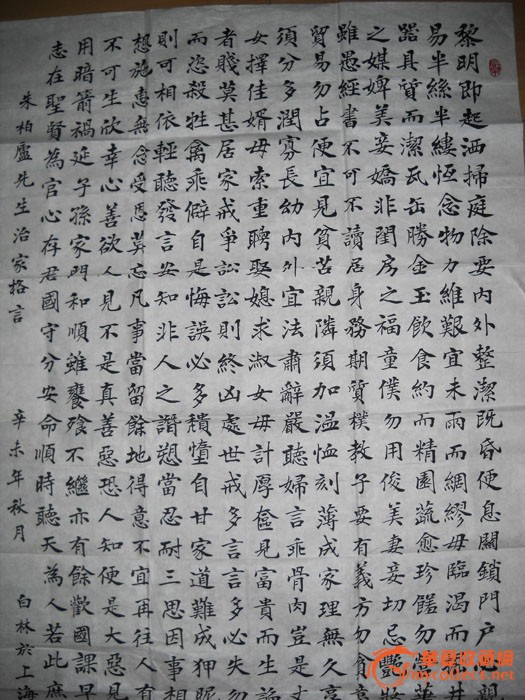 黎明即起洒掃庭除要內外整潔既昏便息關鎖門戶
易半絲半縷恆念物力維艱宜未雨而綢繆毋臨渴而
器具質而潔瓦缶勝金玉飲食約而精園蔬愈珍饈勿營
之媒婢美妾嬌非閨房之福童僕勿用俊美妻妾切忌艷
雖愚經書不可不讀居身務期質樸教子要有義方勿貪意
貿易勿占便宜見貧苦親隣須加溫恤刻薄成家理無久享
須分多潤寡長幼內外宜法肅辭嚴聽婦言乖骨肉豈是丈
女擇佳婿毋索重聘娶媳求淑女毋計厚奩見富貴而生諂
者賤莫甚居家戒爭訟訟則終凶處世戒多言言多必失勿
而恣殺牲禽乖僻自是悔誤必多頹惰自甘家道難成狎昵
則可相依輕聽發言安知非人之譖愬當忍耐三思因事相
想施惠無念受恩莫忘凡事當留餘地得意不宜再往人有
不可生欣幸心善欲人見不是真善惡恐人知便是大惡見
用暗箭禍延子孫家門和順雖饔飧不繼亦有餘歡國課早
志在聖賢為官心存君國守分安命順時聽天為人若此庶
朱柏廬先生治家格言 辛未年秋月 白林於上海